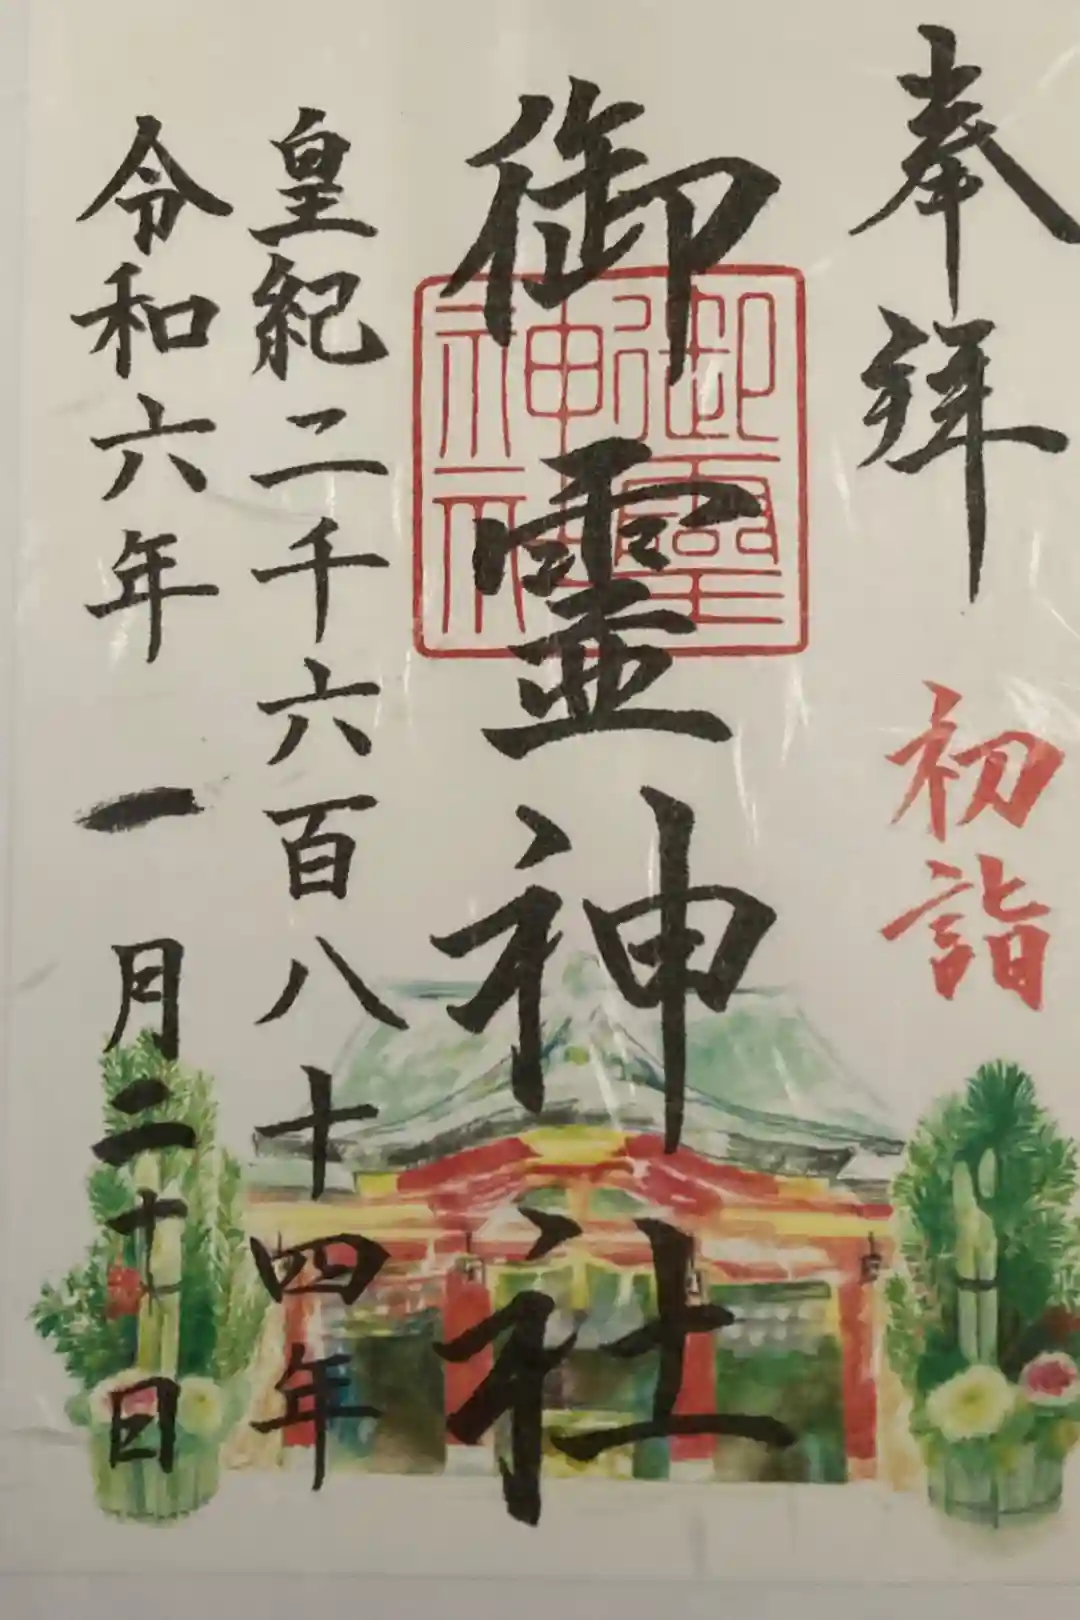 奉拝
初詣
御霊神社
御靈神社
皇紀二千六百八十四年
令和六年一月二十日